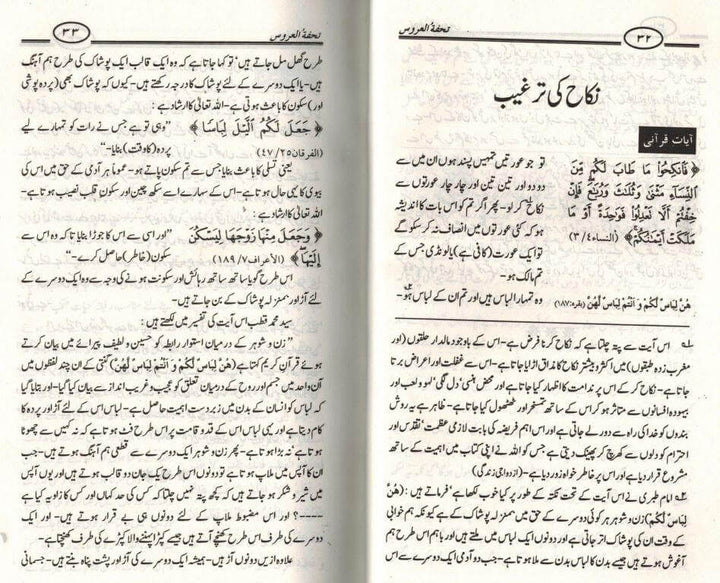 ۳۲
تحفۃ العروس
نکاح کی ترغیب
آیات قرآنی
﴿ فَانكِحُوا مَا طَابَ لَكُم مِّنَ
النِّسَاءِ مَثْنَىٰ وَثُلَاثَ وَرُبَاعَ فَإِنْ
خِفْتُمْ أَلَّا تَعْدِلُوا فَوَاحِدَةً أَوْ مَا
مَلَكَتْ أَيْمَانُكُمْ ﴾ (النساء ۳/۴)
تو جو عورتیں تمہیں پسند ہوں ان میں سے
دو دو اور تین تین اور چار چار عورتوں سے
نکاح کر لو۔ پھر اگر تم کو اس بات کا اندیشہ
ہو کہ کئی عورتوں میں انصاف نہ کر سکو گے
تو ایک عورت (کافی ہے) یا لونڈی جس کے
تم مالک ہو۔
هُنَّ لِبَاسٌ لَّكُمْ وَأَنتُمْ لِبَاسٌ لَّهُنَّ (بقرہ: ۱۸۷)
وہ تمہارا لباس ہیں اور تم ان کے لباس ہو۔
اس آیت سے پتہ چلتا ہے کہ نکاح کرنا فرض ہے۔ اس کے باوجود مالدار حلقوں (اور
مغرب زدہ طبقوں) میں اکثر و بیشتر نکاح کا مذاق اڑایا جاتا ہے۔ اس سے غفلت اور اعراض برتا
جاتا ہے۔ نکاح کر کے اس پر ندامت کا اظہار کیا جاتا ہے اور محض ہنسی دل لگی، لہو و لعب اور
بیہودہ افسانوں سے متاثر ہو کر اس کے ساتھ تمسخر اور ٹھٹھول کیا جاتا ہے۔ ظاہر ہے یہ روش
بندوں کو خدا کی راہ سے دور لے جاتی ہے اور اس اہم فریضہ کی بابت لازمی عظمت، تقدس اور
احترام دلوں سے کھرچ کر پھینک دیتی ہے جس کو اللہ نے اپنی کتاب میں اہمیت کے ساتھ
مشروع قرار دیا ہے اور اس پر خاطر خواہ زور دیا ہے۔ (ازدواجی زندگی)
امام طبری نے اس آیت کے تحت نکتہ کے طور پر کیا خوب لکھا ہے، فرماتے ہیں: (هُنَّ
لِبَاسٌ لَّكُمْ) زن و شوہر ہر کوئی دوسرے کے حق میں بمنزلہ پوشاک کے ہے کیونکہ ہم خوابی
کے وقت ان کی پوشاک اتر جاتی ہے اور دونوں ایک لباس میں ملتے ہیں اور باہم
آغوش ہو جاتے ہیں جیسے بدن کا لباس بدن سے ملا ہوتا ہے۔ جب دو آدمی ایک دوسرے سے اس
۳۳
تحفۃ العروس
طرح گھل مل جاتے ہیں تو کہا جاتا ہے کہ وہ ایک قالب ایک پوشاک کی طرح ہم آہنگ
ہیں۔ یا ایک دوسرے کے لئے پوشاک کا درجہ رکھتے ہیں۔ کیوں کہ پوشاک بھی (پردہ پوشی
اور) سکون کا باعث ہوتی ہے۔ اللہ تعالیٰ کا ارشاد ہے:
﴿ جَعَلَ لَكُمُ اللَّيْلَ لِبَاسًا ﴾ "وہی تو ہے جس نے رات کو تمہارے لیے
(الفرقان ۴۷/۲۵) پردہ (کا وقت) بنایا۔"
یعنی تسلی کا باعث بنایا ہے جس سے تم سکون پاتے ہو۔ عموماً ہر آدمی کے حق میں اس
بیوی کا یہی حال ہوتا ہے۔ اس کے سہارے اسے سکھ چین اور سکون قلب نصیب ہوتا ہے۔
اللہ تعالیٰ کا ارشاد ہے:
﴿ وَجَعَلَ مِنْهَا زَوْجَهَا لِيَسْكُنَ "اور اسی سے اس کا جوڑا بنایا تا کہ وہ اس سے
إِلَيْهَا ﴾ (الأعراف ۱۸۹/۷) سکون (خاطر) حاصل کرے۔"
اس طرح گویا ساتھ ساتھ رہائش اور سکونت ہونے کی وجہ سے وہ ایک دوسرے کے
لئے آڑ اور بمنزلہ پوشاک کے بن جاتے ہیں۔
سید محمد قطب اس آیت کی تفسیر میں لکھتے ہیں:
"زن و شوہر کے درمیان استوار رابطہ کو حسین و لطیف پیرائے میں بیان کرتے
ہوئے قرآن کریم کہتا ہے (هُنَّ لِبَاسٌ لَّكُمْ وَأَنتُمْ لِبَاسٌ لَّهُنَّ) گنتی کے ان چند لفظوں میں
آن واحد میں جسم اور روح کے درمیان تعلق کو عجیب و غریب انداز سے بیان کیا گیا۔ اور بتایا گیا
کہ لباس کو انسان کے بدن میں زبردست اہمیت حاصل ہے۔ لباس اس کے لئے آڑ اور پردہ کا
کام دیتا ہے اور یہی لباس اس کے قد و قامت پر اس طرح فٹ ہوتا ہے کہ نہ کہیں سے چھوٹا
ہوتا ہے نہ بڑا ہوتا ہے۔ پھر زن و شوہر ایک دوسرے سے قطعی ہم آہنگ ہوتے ہیں۔ جب
ان کا آپس میں ملاپ ہوتا ہے تو دونوں اس طرح یک جان دو قالب ہوتے ہیں اور یوں آپس
میں شیر و شکر ہو جاتے ہیں کہ کچھ پتہ نہیں چلتا کہ کس کی حد کہاں اور کس کا زاویہ کیا ہے
----؟ اور اس مضبوط ملاپ کے لئے دونوں ہی بے قرار ہوتے ہیں۔ اور ایک
دوسرے کی طرف اس طرح کھنچے آتے ہیں جیسے کپڑا پہننے والا کپڑے کی طرف کھنچتا ہے۔
علاوہ ازیں دونوں آڑ ہیں۔ ہمیشہ ایک دوسرے کی آڑ اور پشت پناہ بنتے ہیں۔ جسمانی